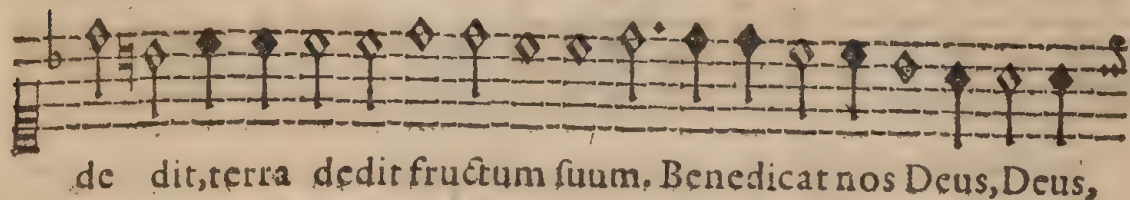 de dit,terra dedit fructum ſuum. Benedicat nos Deus,Deus,